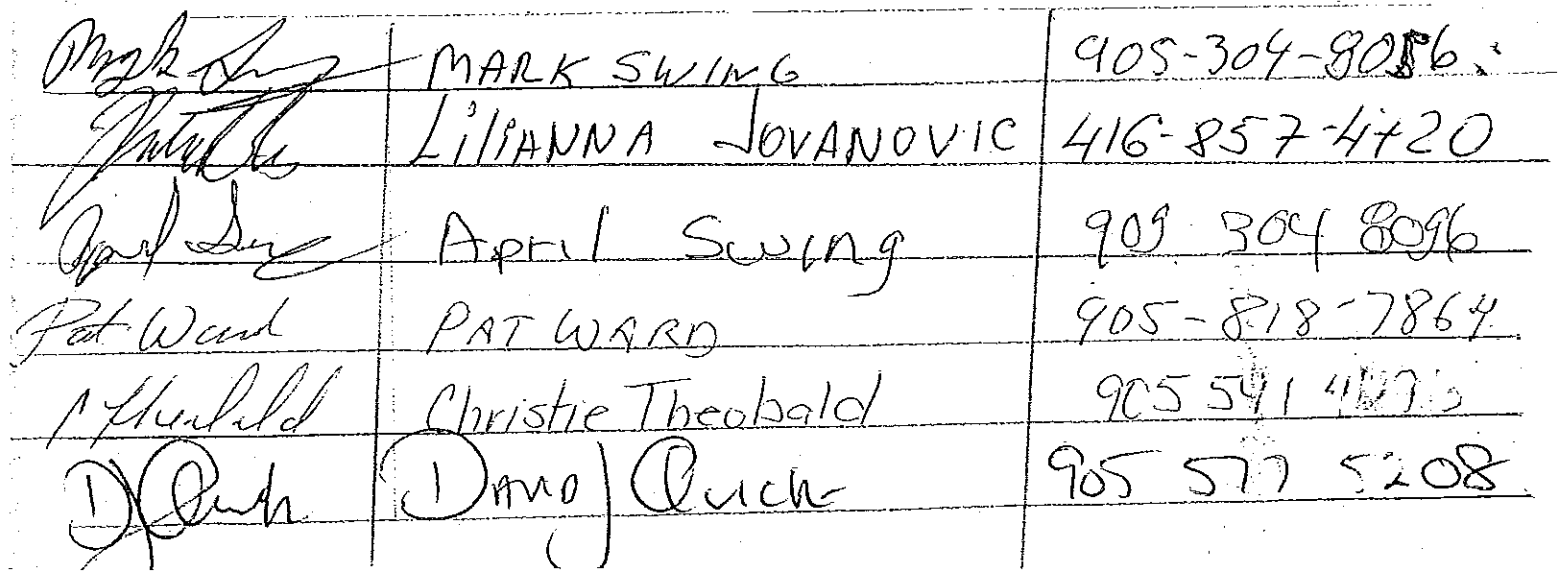 Mark Swing MARK SWING 905-304-80
LiliANNA JOVANOVIC 416-857-4420
April Swing April Swing 905 304 8096
Pat Ward PAT WARD 905-818-7864
C Theobald Christie Theobald 905 541
DJ Quick DAVID J Quick 905 577 5208